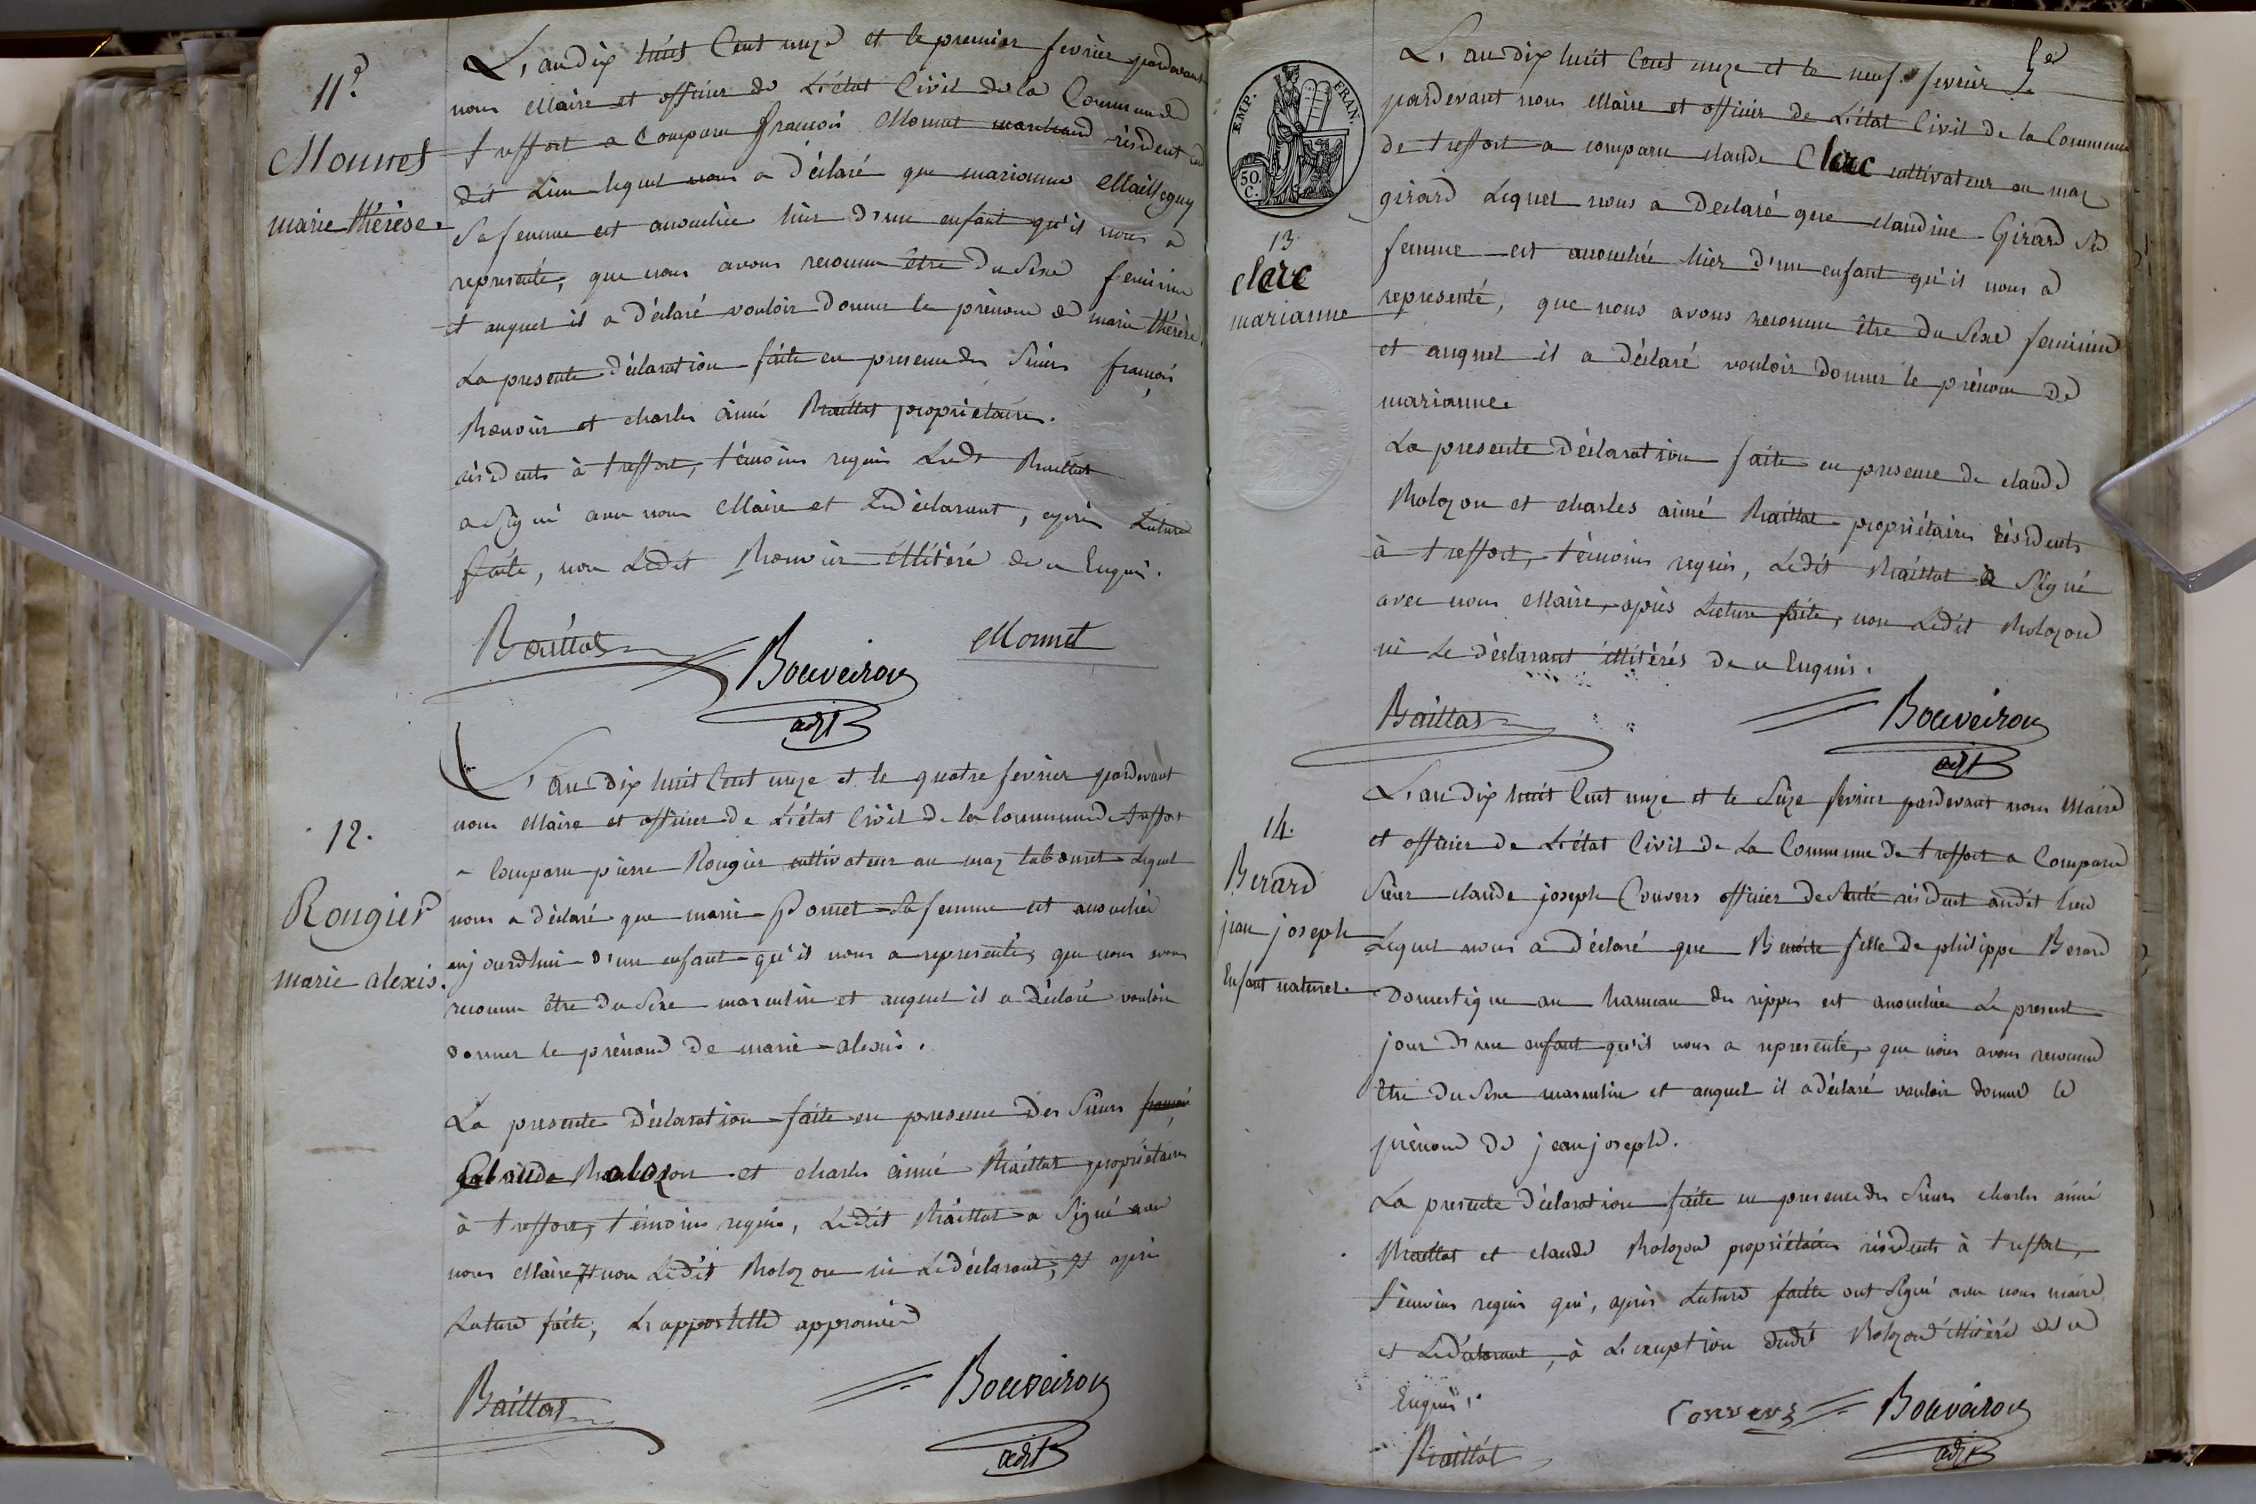 11e
Monnet
marie thérèse
L'an dix huit Cent onze et le premier fevrier pardevant
nous Maire et officier de L'état Civil de la Commune de
treffort a Comparu françois Monnet marchand résident au
dit Lieu lequel nous a déclaré que marianne
Sa femme est accouchée hier d'un enfant qu'il nous a
representé, que nous avons reconnu être du Sexe feminin
et auquel il a déclaré vouloir donner le prénom de marie thérèse,
La presente déclaration faite en presence des Sieurs françois
et charles aimé Baillat propriétaires
résidents à treffort, témoins requis Ledit Baillat
a Signé avec nous Maire et Le déclarant, après Lecture
faite, non Ledit illitéré de ce Enquis.
Baillat Bouveiron Monnet
adjt
12.
Rougier
marie alexis.
L'an dix huit Cent onze et le quatre fevrier pardevant
nous Maire et officier de L'état Civil de la Commune de treffort
a Comparu pierre Rougier cultivateur au maz tabouret Lequel
nous a déclaré que marie Pomet Sa femme est accouchée
aujourdhui d'un enfant qu'il nous a representé, que nous avons
reconnu être du Sexe masculin et auquel il a déclaré vouloir
donner le prénom de marie alexis.
La presente déclaration faite en presence des Sieurs françois
Claude Molozon et charles aimé Baillat propriétaires
à treffort, témoins requis, Ledit Baillat a Signé avec
nous Maire et non Ledit Molozon ni Le déclarant, après
Lecture faite, L'appostille approuvée
Baillat Bouveiron
adjt
EMP. FRAN.
50 C.
13
clerc
marianne
L'an dix huit Cent onze et le neuf fevrier
pardevant nous Maire et officier de L'état Civil de la Commune
de treffort a comparu claude Clerc cultivateur au maz
girard Lequel nous a Declaré que claudine Girard Sa
femme est accouchée hier d'un enfant qu'il nous a
representé, que nous avons reconnu être du Sexe feminin
et auquel il a déclaré vouloir donner le prénom de
marianne
La presente déclaration faite en presence de claude
Molozon et charles aimé Baillat propriétaires résidents
à treffort, témoins requis, Ledit Baillat a Signé
avec nous Maire, après Lecture faite, non Ledit Molozon
ni Le déclarant illitérés de ce Enquis.
Baillat Bouveiron
adjt
14.
Berard
jean joseph
Enfant naturel.
L'an dix huit Cent onze et le Seize fevrier pardevant nous Maire
et officier de L'état Civil de La Commune de treffort a Comparu
Sieur claude joseph Convers officier de Santé résident audit lieu
Lequel nous a déclaré que Benoite fille de philippe Berard
Domestique au hameau des rippes est accouchée Le present
jour d'un enfant qu'il nous a representé, que nous avons reconnu
être du Sexe masculin et auquel il a déclaré vouloir donner le
prénom de jean joseph.
La presente déclaration faite en presence des Sieurs charles aimé
Baillat et claude Molozon propriétaires résidents à treffort,
témoins requis qui, après Lecture faite ont Signé avec nous maire
et Le déclarant, à L'exception dudit Molozon illitéré de ce
Enquis.
Convers Bouveiron
Baillat adjt